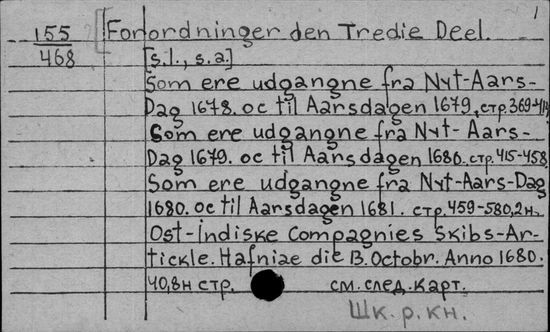 1
155 Forordninger den Tredie Deel.
468 [s.l., s.a.]
Som ere udgangne fra Nyt-Aars-
Dag 1678. oc til Aarsdagen 1679, стр.369-414
Som ere udgangne fra Nyt-Aars-
Dag 1679. oc til Aarsdagen 1680. стр.415-458
Som ere udgangne fra Nyt-Aars-Dag
1680. oc til Aarsdagen 1681. стр.459-580,2н.
Ost-indiske Compagnies Skibs-Ar-
tickle. Hafniae die 13. Octobr. Anno 1680.
40,8н стр. см. след. карт.
Шк.р.кн.